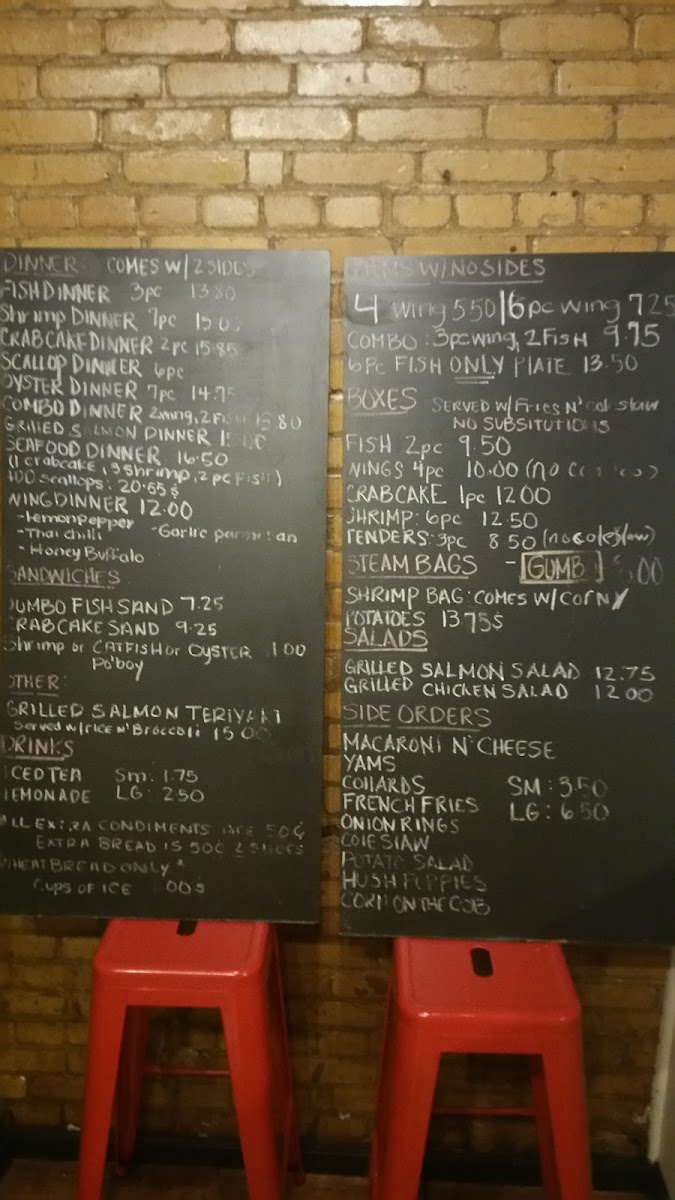 DINNER: COMES W/ 2 SIDES
FISH DINNER 3pc 13.80
Shrimp DINNER 7pc
CRABCAKE DINNER 2pc 15.85
SCALLOP DINNER 6pc
OYSTER DINNER 7pc 14.75
COMBO DINNER 2wing, 2 Fish 13.80
GRILLED SALMON DINNER
SEAFOOD DINNER 16.50
(1 crabcake, 3 shrimp, 2 pc Fish)
scallops: 20.65 $
WING DINNER 12.00
-Lemonpepper
-Thai chilli -Garlic parmesan
-Honey Buffalo
SANDWICHES
JUMBO FISH SAND 7.25
CRABCAKE SAND 9.25
Shrimp or CATFISH or OYSTER
Po'boy
OTHER:
GRILLED SALMON TERIYAKI
Served w/ RICE N' Broccoli 15.00
DRINKS
ICED TEA Sm: 1.75
LEMONADE LG: 2.50
ALL EXTRA CONDIMENTS ARE 50¢
EXTRA BREAD IS 50¢ 2 SLICES
WHEAT BREAD ONLY *
Cups OF ICE
ITEMS W/ NO SIDES
4 wing 5.50 | 6pc wing 7.25
COMBO: 3pc wing, 2 FISH 9.75
6 Pc FISH ONLY PLATE 13.50
BOXES SERVED W/ Fries N' cole slaw
NO SUBSITUTIONS
FISH 2pc 9.50
WINGS 4pc 10.00 (no
CRABCAKE 1pc 12.00
SHRIMP: 6pc 12.50
TENDERS: 3pc 8.50 (no coleslaw)
STEAM BAGS - GUMBO
SHRIMP BAG: COMES W/ CORN/
POTATOES 13.75$
SALADS
GRILLED SALMON SALAD 12.75
GRILLED CHICKEN SALAD 12.00
SIDE ORDERS
MACARONI N' CHEESE
YAMS
COLLARDS SM: 3.50
FRENCH FRIES LG: 6.50
ONION RINGS
COLESLAW
POTATO SALAD
HUSH PUPPIES
CORN ON THE COB